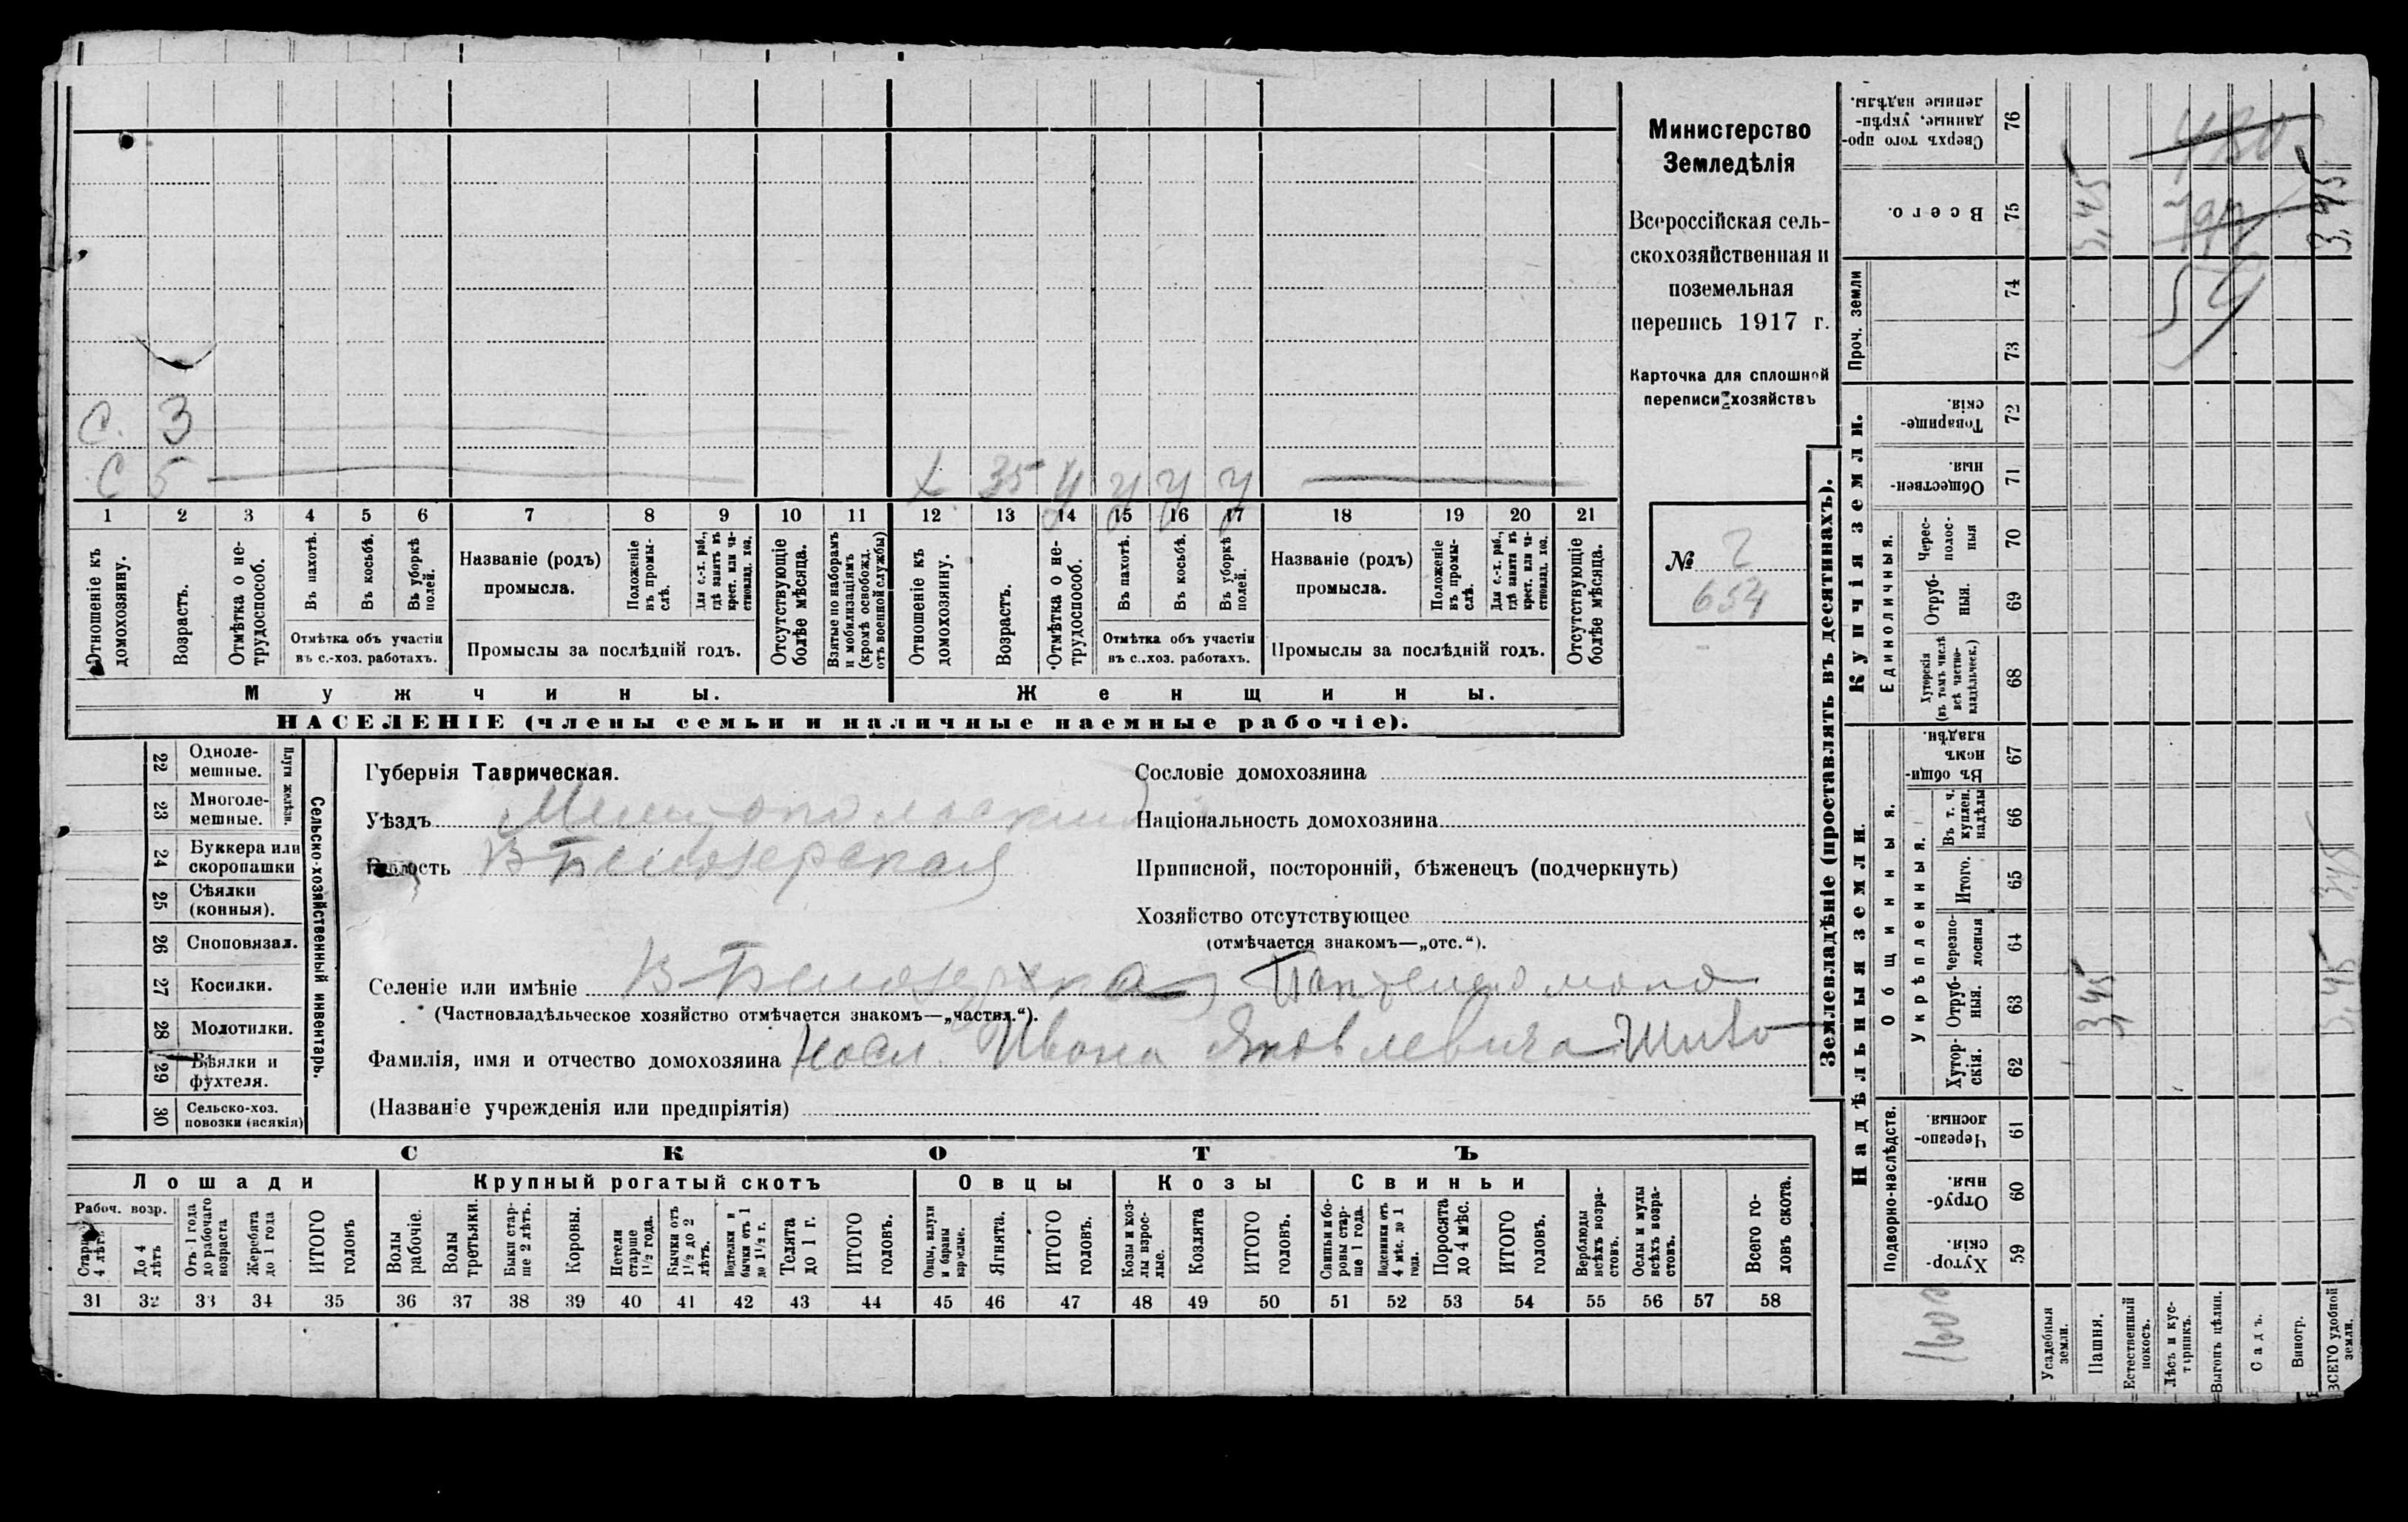 С. 3
С 5
х 35 у у у у
1 2 3 4 5 6 7 8 9 10 11 12 13 14 15 16 17 18 19 20 21
Отношеніе къ домохозяину.
Возрастъ.
Отмѣтка о не-трудоспособ.
Въ пахотѣ.
Въ косьбѣ.
Въ уборкѣ полей.
Отмѣтка объ участіи
въ с.-хоз. работахъ.
Названіе (родъ)
промысла.
Положеніе въ промы-слѣ.
Для с.-х. раб., гдѣ занятъ въ крест. или ча-стновлад. хоз.
Промыслы за послѣдній годъ.
Отсутствующіе болѣе мѣсяца.
Взятые по наборамъ и мобилизаціямъ (кромѣ освобожд. отъ военной службы)
Отношеніе къ домохозяину.
Возрастъ.
Отмѣтка о не-трудоспособ.
Въ пахотѣ.
Въ косьбѣ.
Въ уборкѣ полей.
Отмѣтка объ участіи
въ с..хоз. работахъ.
Названіе (родъ)
промысла.
Положеніе въ промы-слѣ.
Для с.-х. раб., гдѣ занята въ крест. или ча-стновлад. хоз.
Промыслы за послѣдній годъ.
Отсутствующіе болѣе мѣсяца.
Мужчины. Женщины.
НАСЕЛЕНІЕ (члены семьи и наличные наемные рабочіе).
Министерство
Земледѣлія
Всероссійская сель-
скохозяйственная и
поземельная
перепись 1917 г.
Карточка для сплошной
переписи хозяйствъ
№ 2
654
Сельско-хозяйственный инвентарь.
Плуги желѣзн.
22 Одноле-
мешные.
23 Многоле-
мешные.
24 Буккера или
скоропашки
25 Сѣялки
(конныя).
26 Сноповязал.
27 Косилки.
28 Молотилки.
29 Вѣялки и
фухтеля.
30 Сельско-хоз.
повозки (всякія)
Губернія Таврическая.
Уѣздъ Мелитопольский
Волость В Белозерская
Сословіе домохозяина
Національность домохозяина
Приписной, посторонній, бѣженецъ (подчеркнуть)
Хозяйство отсутствующее
(отмѣчается знакомъ—„отс.“).
Селеніе или имѣніе В Белозерка
(Частновладѣльческое хозяйство отмѣчается знакомъ—„частвл.“).
Фамилія, имя и отчество домохозяина Насл. Ивана Яковлевича
(Названіе учрежденія или предпріятія)
СКОТЪ
Лошади Крупный рогатый скотъ Овцы Козы Свиньи
Рабоч. возр.
Старше 4 лѣтъ
До 4 лѣтъ
Отъ 1 года до рабочаго возраста
Жеребята до 1 года
ИТОГО головъ
Волы рабочіе.
Волы третьяки.
Быки стар-ше 2 лѣтъ.
Коровы.
Нетели старше 1½ года.
Бычки отъ 1½ до 2 лѣтъ.
Подтелки и бычки отъ 1 до 1½ г.
Телята до 1 г.
ИТОГО головъ.
Овцы, валухи и бараны взрослые.
Ягнята.
ИТОГО головъ.
Козы и коз-лы взрос-лые.
Козлята
ИТОГО головъ.
Свиньи и бо-ровы стар-ше 1 года.
Подсвинки отъ 4 мѣс. до 1 года.
Поросята до 4 мѣс.
ИТОГО головъ.
Верблюды всѣхъ возра-стовъ.
Ослы и мулы всѣхъ возра-стовъ.
Всего го-ловъ скота.
31 32 33 34 35 36 37 38 39 40 41 42 43 44 45 46 47 48 49 50 51 52 53 54 55 56 57 58
Землевладѣніе (проставлять въ десятинахъ).
Надѣльныя земли. Купчія земли. Проч. земли
Подворно-наслѣдств. Общинныя. Единоличныя.
Укрѣпленныя.
Хутор-скія. 59
Отруб-ныя. 60
Черезпо-лосныя 61
Хутор-скія. 62
Отруб-ныя. 63
Черезпо-лосныя 64
Итого. 65
Въ т. ч. куплен. надѣлы 66
Въ общи-номъ владѣн. 67
Хуторскія (въ томъ числѣ всѣ частно-владѣльческ.) 68
Отруб-ныя. 69
Черес-полос-ныя 70
Обществен-ныя. 71
Товарище-скія. 72
73
74
Всего. 75
Сверхъ того про-данные, укрѣп-ленные надѣлы. 76
Усадебныя земли.
Пашня. 3,45 3,45
Естественный покосъ.
Лѣсъ и кус-тарникъ.
Выгонъ цѣлин.
Садъ.
Виногр.
ВСЕГО удобной земли. 3,45 3,45 3,45